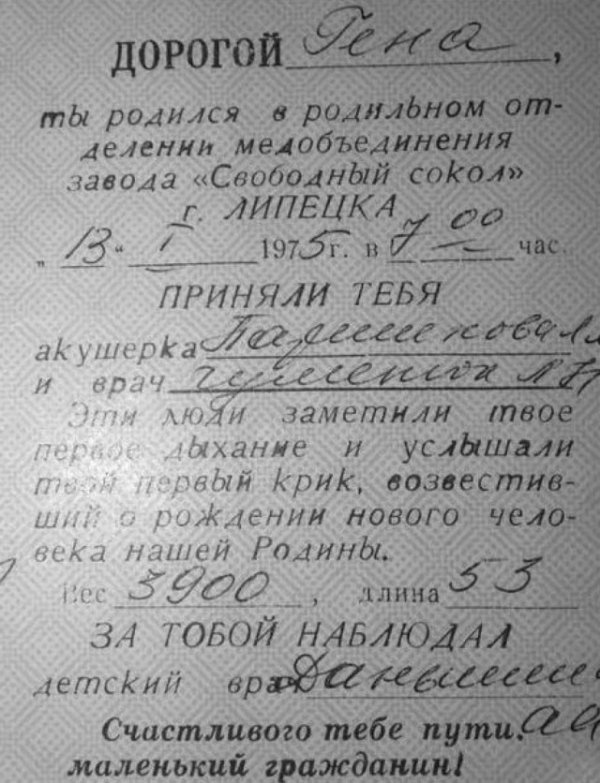 ДОРОГОЙ Гена,
ты родился в родильном от-
делении медобъединения
завода «Свободный сокол»
г. ЛИПЕЦКА
„ 13 “ I 1975 г. в 7 00 час.
ПРИНЯЛИ ТЕБЯ
акушерка
и врач
Эти люди заметили твое
первое дыхание и услышали
твой первый крик, возвестив-
ший о рождении нового чело-
века нашей Родины.
Вес 3900, длина 53
ЗА ТОБОЙ НАБЛЮДАЛ
детский врач
Счастливого тебе пути,
маленький гражданин!